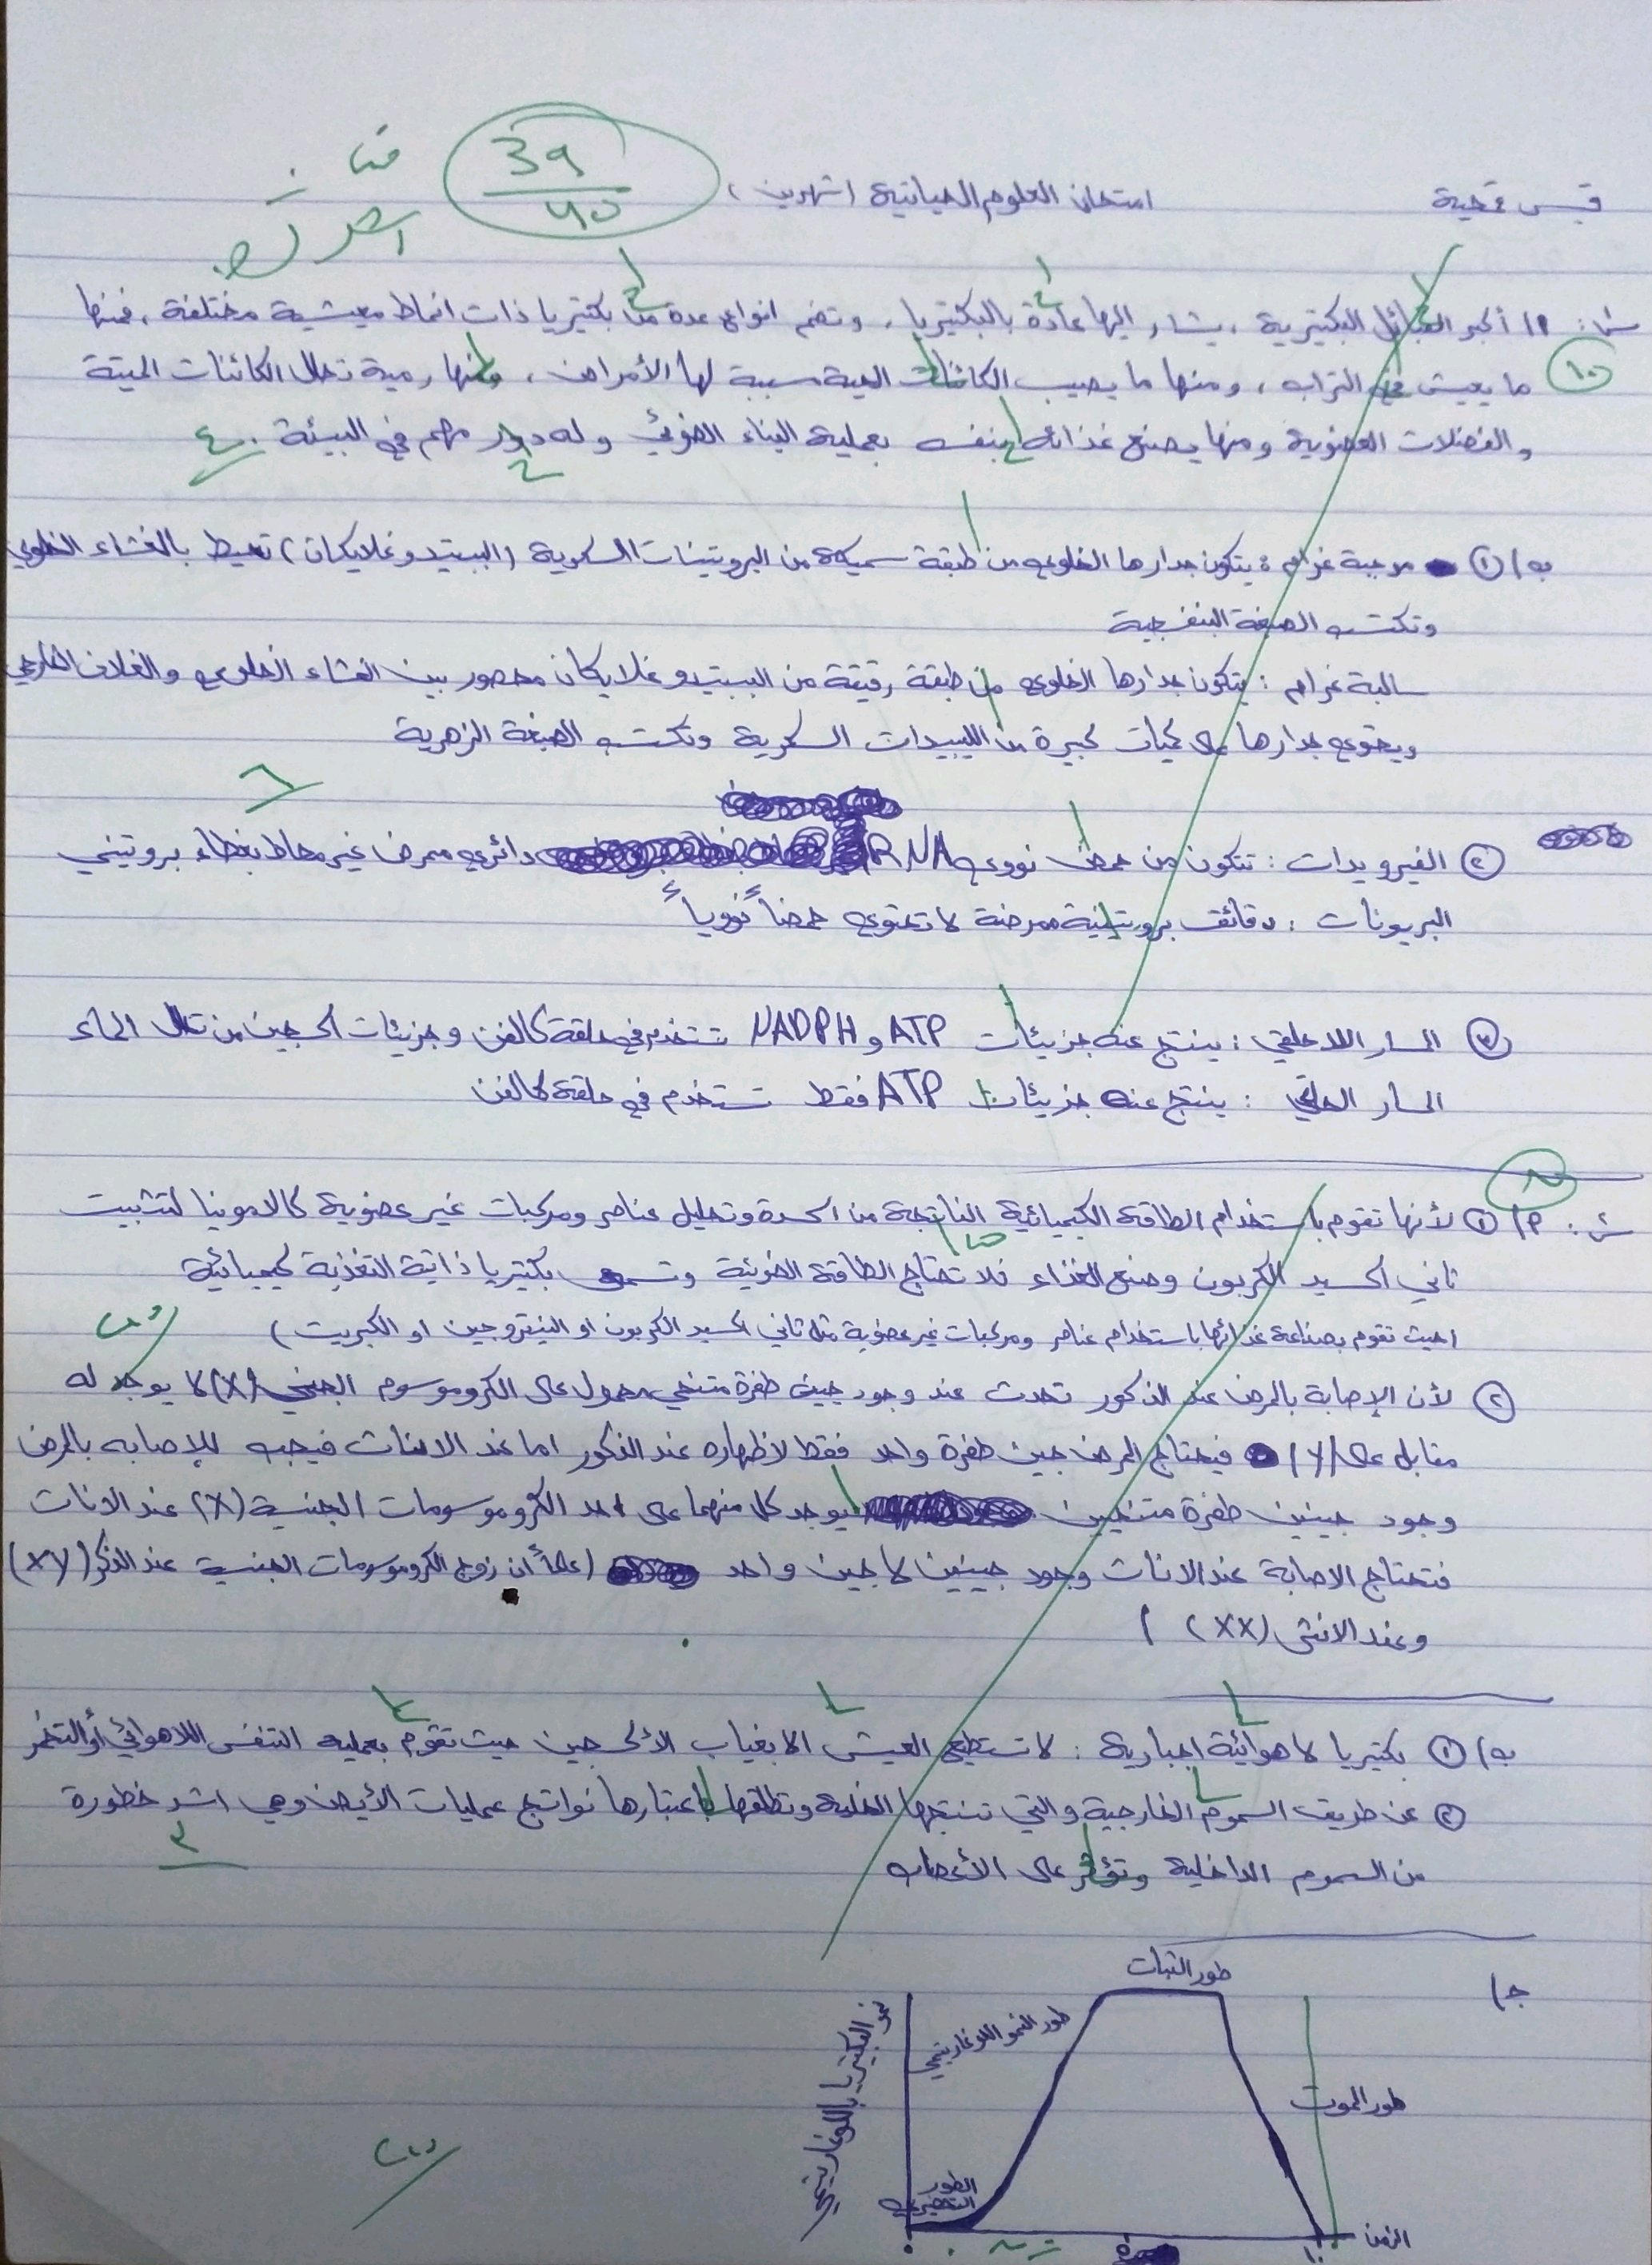 قبس قمحية
امتحان العلوم الحياتية (شهرين)
39
40
ممتاز
س١: أ) أكبر القبائل البكتيرية ، يشار إليها عادة بالبكتيريا ، وتضم انواع عدة من بكتيريا ذات انماط معيشية مختلفة ، فمنها
١٠ ما يعيش في التراب ، ومنها ما يصيب الكائنات الحية مسببة لها الأمراض ، ومنها رمية تحلل الكائنات الميتة
والفضلات العضوية ومنها يصنع غذائه بنفسه بعملية البناء الضوئي وله دور مهم في البيئة . ٤
ب) ① موجبة غرام : يتكون جدارها الخلوي من طبقة سميكة من البروتينات السكرية (الببتيدوغلايكان) تحيط بالغشاء الخلوي
وتكتسب الصبغة البنفسجية
سالبة غرام : يتكون جدارها الخلوي من طبقة رقيقة من الببتيدوغلايكان محصور بين الغشاء الخلوي والغلاف الخارجي
ويحتوي جدارها على كميات كبيرة من الليبيدات السكرية وتكتسب الصبغة الزهرية
٦
② الفيرويدات : تتكون من حمض نووي RNA دائري ممرض غير محاط بغطاء بروتيني
البريونات : دقائق بروتينية ممرضة لا تحتوي حمضاً نووياً
③ المسار اللاحلقي : ينتج عنه جزيئات ATP و NADPH تستخدم في حلقة كالفن وجزيئات اكسجين من تحلل الماء
المسار الحلقي : ينتج عنه جزيئات ATP فقط تستخدم في حلقة كالفن
س٢: أ) ① لأنها تقوم باستخدام الطاقة الكيميائية الناتجة من اكسدة وتحليل عناصر ومركبات غير عضوية كالامونيا لتثبيت
ثاني اكسيد الكربون وصنع الغذاء فلا تحتاج الطاقة الضوئية وتسمى بكتيريا ذاتية التغذية كيميائية
(حيث تقوم بصناعة غذائها باستخدام عناصر ومركبات غير عضوية مثل ثاني اكسيد الكربون او النيتروجين او الكبريت)
② لأن الإصابة بالمرض عند الذكور تحدث عند وجود جين طفرة متنحي محمول على الكروموسوم الجنسي (X) لا يوجد له
مقابل على (Y) فيحتاج المرض جين طفرة واحد فقط لاظهاره عند الذكور اما عند الاناث فيجب للإصابه بالمرض
وجود جينين طفرة متنحيين يوجد كل منهما على احد الكروموسومات الجنسية (X) عند الاناث
فتحتاج الاصابة عند الاناث وجود جينين لا جين واحد (علماً ان زوج الكروموسومات الجنسية عند الذكر (XY)
وعند الانثى (XX) )
ب) ① بكتيريا لا هوائية اجبارية : لا تستطيع العيش الا بغياب الأكسجين حيث تقوم بعملية التنفس اللاهوائي أو التخمر
② عن طريق السموم الخارجية والتي تنتجها الخلية وتطلقها باعتبارها نواتج عمليات الأيض وهي اشد خطورة
من السموم الداخلية وتؤثر على الأعصاب
٣
ج)
طور الثبات
طور النمو اللوغاريتمي
نمو البكتيريا باللوغاريتمي
طور الموت
الطور التحضيري
الزمن
١٠